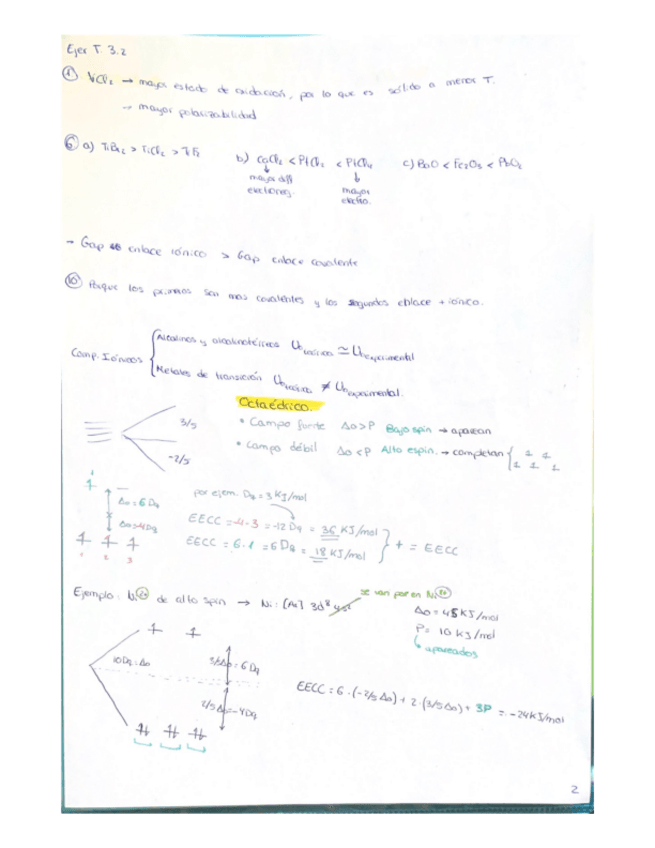 Ejer T. 3.2
① VCl₂ → mayor estado de oxidación, por lo que es sólido a menor T.
→ mayor polarizabilidad
⑥ a) TiBr₂ > TiCl₂ > TiF₂ b) CaCl₂ < PtCl₂ < PtCl₄ c) BaO < Fe₂O₃ < PbO₂
↓ mayor diff electroneg. ↓ mayor electro.
→ Gap enlace iónico > Gap enlace covalente
⑩ Porque los primeros son mas covalentes y los segundos enlace + iónico.
Comp. Iónicos { Alcalinos y alcalinotérreos U₀ teórica ≃ U₀ experimental
Metales de transición U₀ teórica ≠ U₀ experimental.
Octaédrico.
• Campo fuerte Δo > P Bajo spin → aparean
• Campo débil Δo < P Alto espin. → completan { 1 1 1 1 1
3/5
-2/5
Δo = 6 Dq
Δo = -4Dq
1 2 3
por ejem. Dq = 3 KJ/mol
EECC = -4·3 = -12 Dq = 36 KJ/mol
EECC = 6·1 = 6 Dq = 18 KJ/mol } + = EECC
Ejemplo: Ni 2+ de alto spin → Ni: [Ar] 3d⁸ 4s² se van por en Ni 2+
Δo = 45 KJ/mol
P = 10 KJ/mol
↳ apareados
10Dq = Δo
3/5Δo = 6 Dq
2/5 Δo = -4Dq
EECC = 6·(-2/5 Δo) + 2·(3/5 Δo) + 3P = -24 KJ/mol
2